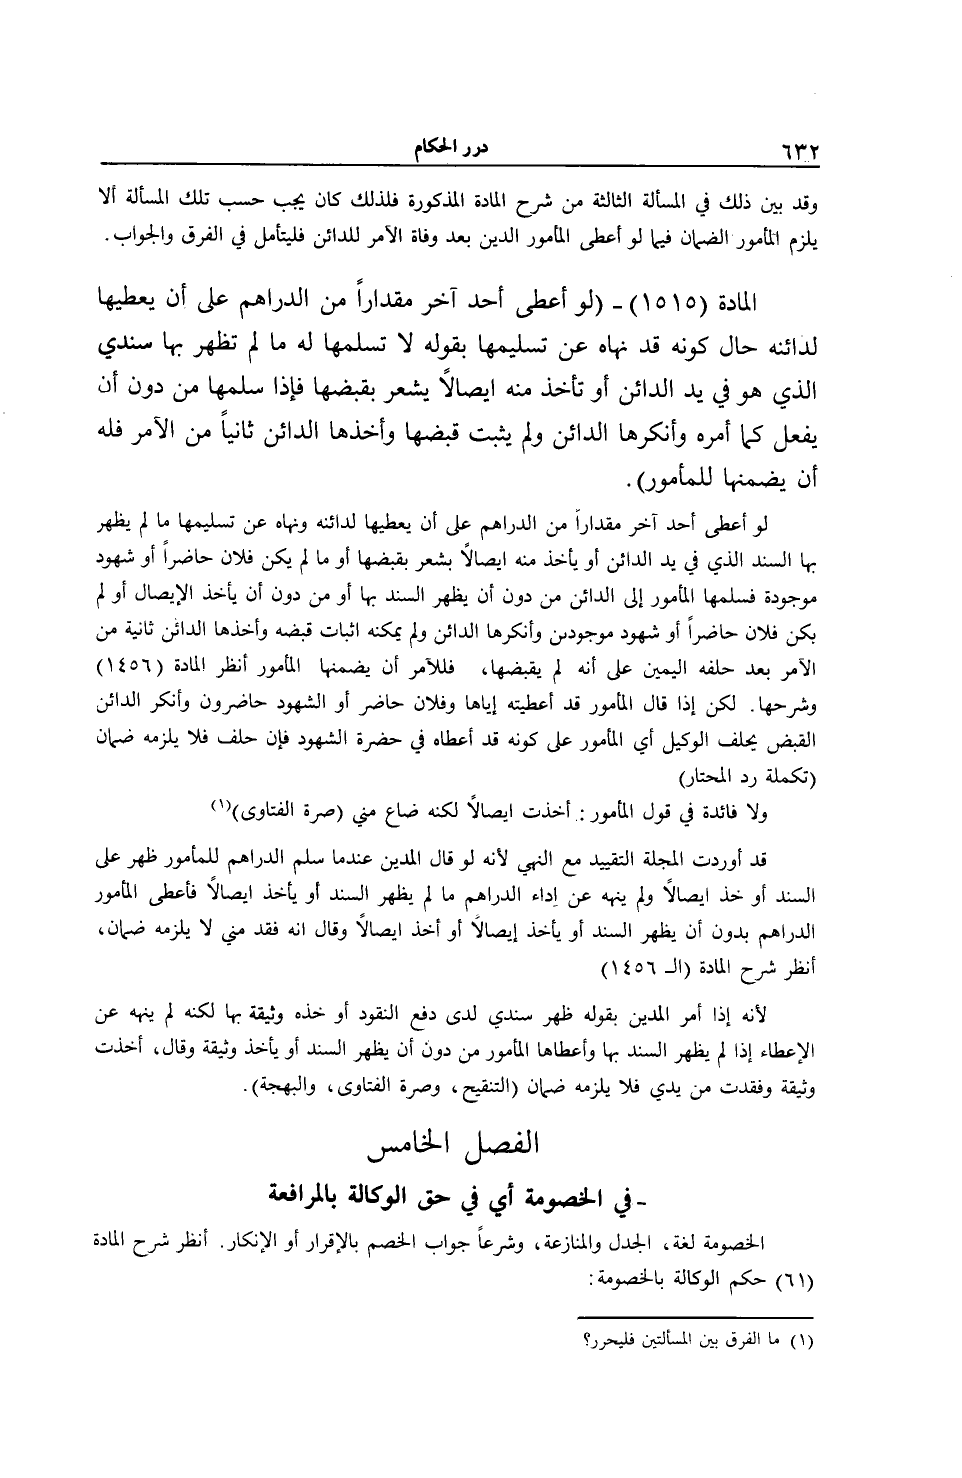 ٦٣٢ درر الحكام
وقد بين ذلك في المسألة الثالثة من شرح المادة المذكورة فلذلك كان يجب حسب تلك المسألة ألا
يلزم المأمور الضمان فيما لو أعطى المأمور الدين بعد وفاة الآمر للدائن فليتأمل في الفرق والجواب.
المادة (١٥١٥) - (لو أعطى أحد آخر مقداراً من الدراهم على أن يعطيها
لدائنه حال كونه قد نهاه عن تسليمها بقوله لا تسلمها له ما لم تظهر بها سندي
الذي هو في يد الدائن أو تأخذ منه ايصالاً يشعر بقبضها فإذا سلمها من دون أن
يفعل كما أمره وأنكرها الدائن ولم يثبت قبضها وأخذها الدائن ثانياً من الآمر فله
أن يضمنها للمأمور).
لو أعطى أحد آخر مقداراً من الدراهم على أن يعطيها لدائنه ونهاه عن تسليمها ما لم يظهر
بها السند الذي في يد الدائن أو يأخذ منه ايصالاً بشعر بقبضها أو ما لم يكن فلان حاضراً أو شهود
موجودة فسلمها المأمور إلى الدائن من دون أن يظهر السند بها أو من دون أن يأخذ الإيصال أو لم
يكن فلان حاضراً أو شهود موجودين وأنكرها الدائن ولم يمكنه اثبات قبضه وأخذها الدائن ثانية من
الآمر بعد حلفه اليمين على أنه لم يقبضها، فللآمر أن يضمنها المأمور أنظر المادة (١٤٥٦)
وشرحها. لكن إذا قال المأمور قد أعطيته إياها وفلان حاضر أو الشهود حاضرون وأنكر الدائن
القبض يحلف الوكيل أي المأمور على كونه قد أعطاه في حضرة الشهود فإن حلف فلا يلزمه ضمان
(تكملة رد المحتار)
ولا فائدة في قول المأمور: أخذت ايصالاً لكنه ضاع مني (صرة الفتاوى)(١)
قد أوردت المجلة التقييد مع النهي لأنه لو قال المدين عندما سلم الدراهم للمأمور ظهر على
السند أو خذ ايصالاً ولم ينهه عن إداء الدراهم ما لم يظهر السند أو يأخذ ايصالاً فأعطى المأمور
الدراهم بدون أن يظهر السند أو يأخذ إيصالاً أو أخذ ايصالاً وقال انه فقد مني لا يلزمه ضمان،
أنظر شرح المادة (الـ ١٤٥٦)
لأنه إذا أمر المدين بقوله ظهر سندي لدى دفع النقود أو خذه وثيقة بها لكنه لم ينهه عن
الإعطاء إذا لم يظهر السند بها وأعطاها المأمور من دون أن يظهر السند أو يأخذ وثيقة وقال، أخذت
وثيقة وفقدت من يدي فلا يلزمه ضمان (التنقيح، وصرة الفتاوى، والبهجة).
الفصل الخامس
- في الخصومة أي في حق الوكالة بالمرافعة
الخصومة لغة، الجدل والمنازعة، وشرعاً جواب الخصم بالإقرار أو الإنكار. أنظر شرح المادة
(٦١) حكم الوكالة بالخصومة:
(١) ما الفرق بين المسألتين فليحرر؟